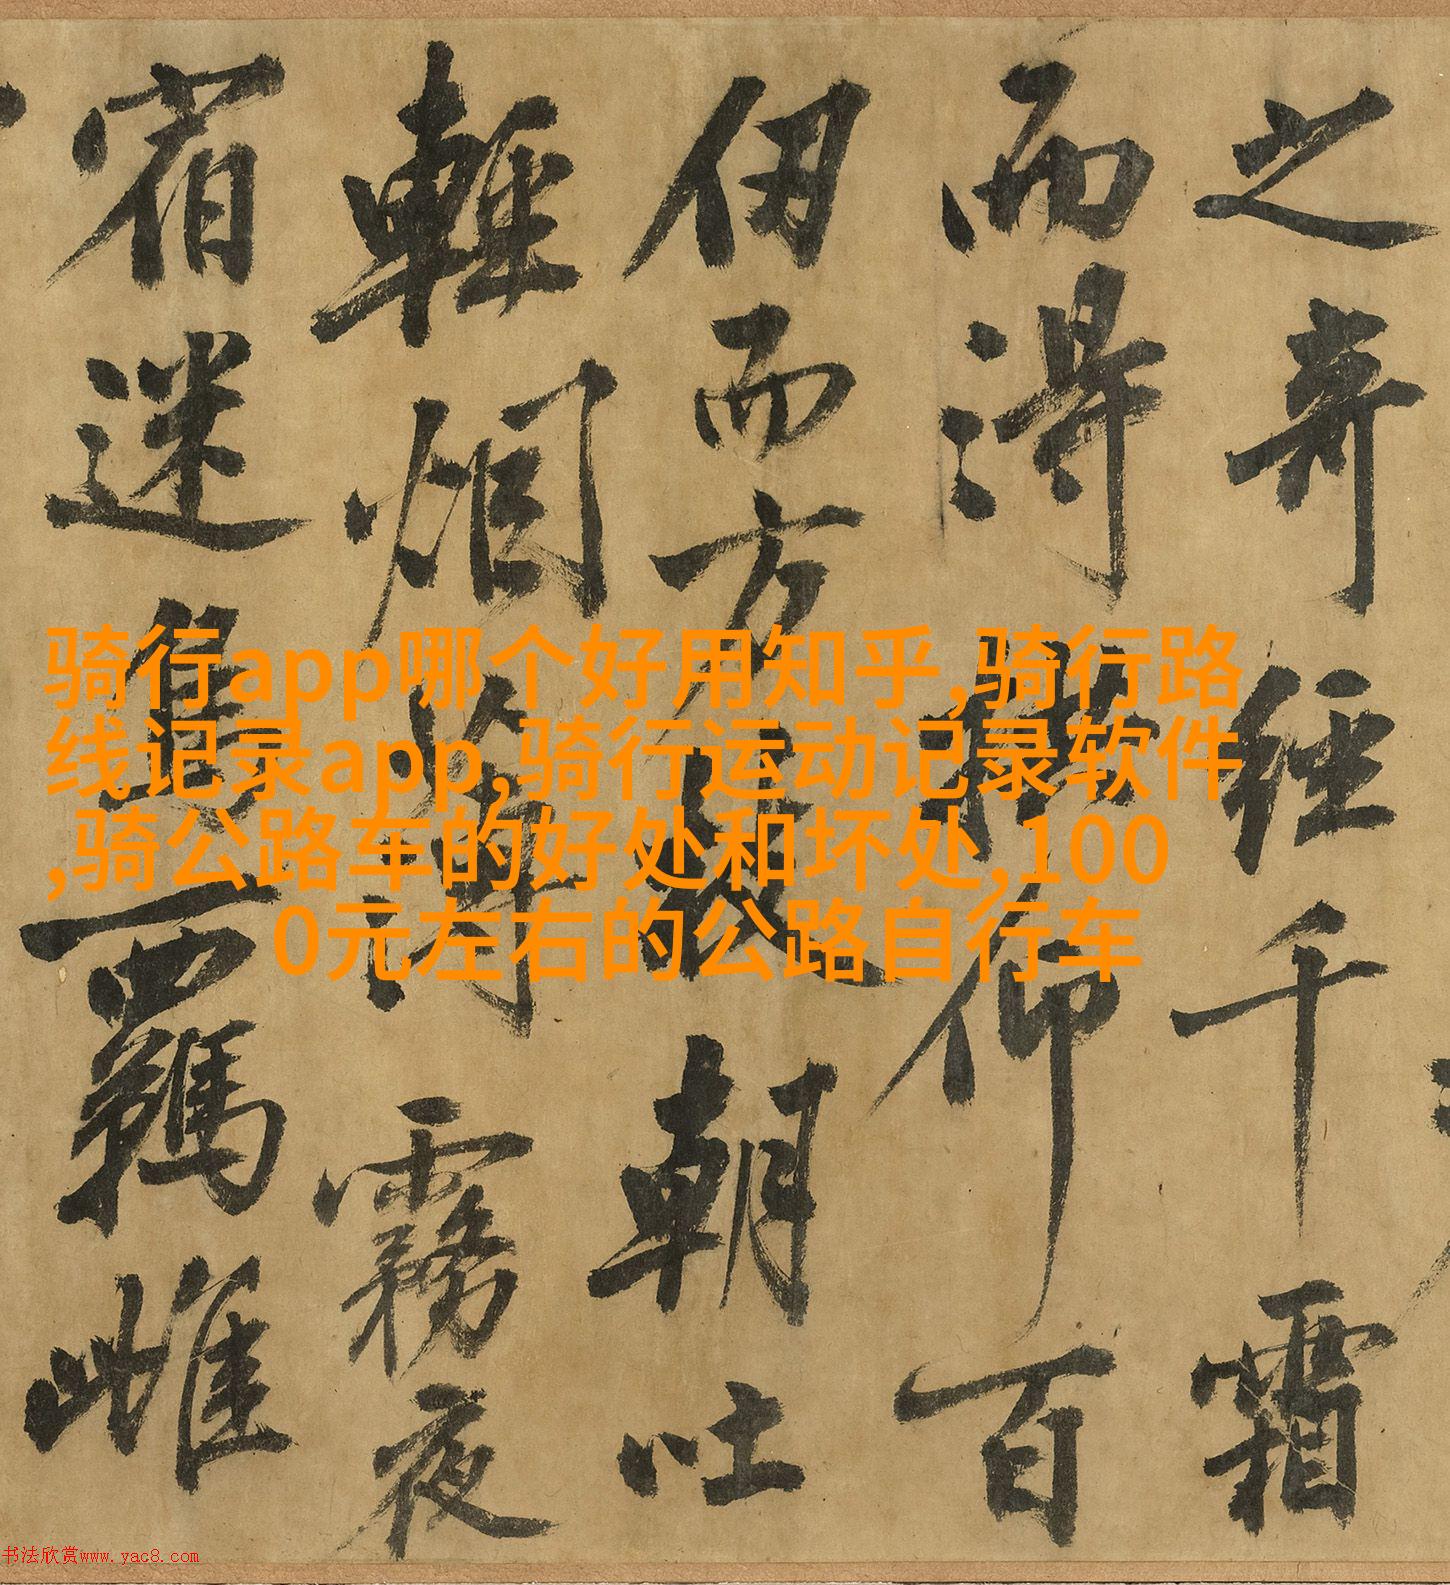 之奇經千霜
而得拱仰百
仞而方枝朝吐
輕烟薄霧夜
宿迷鳥羈雌
骑行app哪个好用知乎,骑行路
线记录app,骑行运动记录软件
,骑公路车的好处和坏处,100
0元左右的公路自行车
书法欣赏www.yac8.com